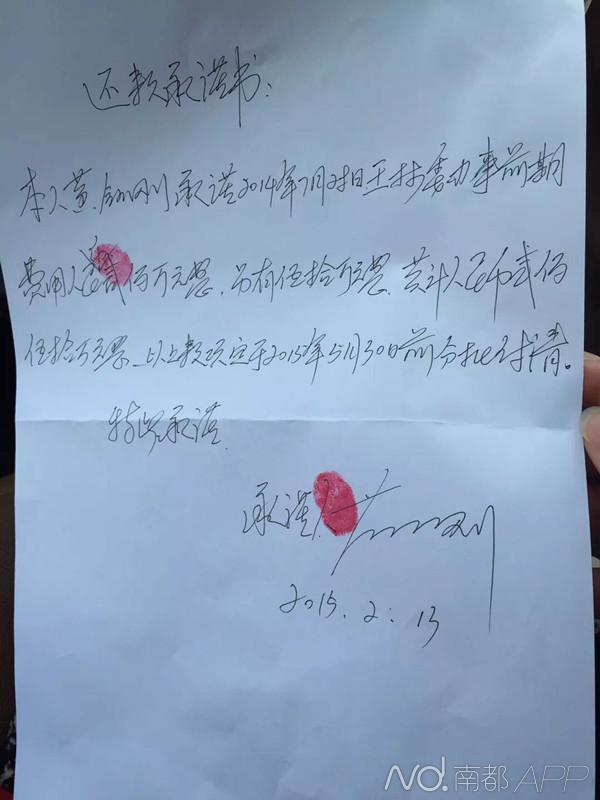 还款承诺书:
本人黄 刚承诺2014年7月 日王 委办事前期
费用人民币贰佰万元整,另有伍拾万元整,共计人民币贰佰
伍拾万元整。以上款项定于2015年5月30日前分批付清。
特此承诺.
承诺人: 黄 刚
2015.2.13
nd.南都APP